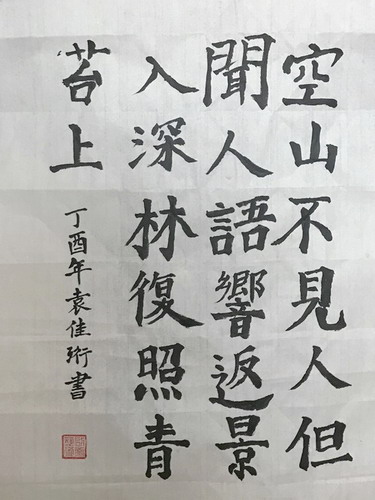 空山不見人但
聞人語響返景
入深林復照青
苔上
丁酉年袁佳珩書